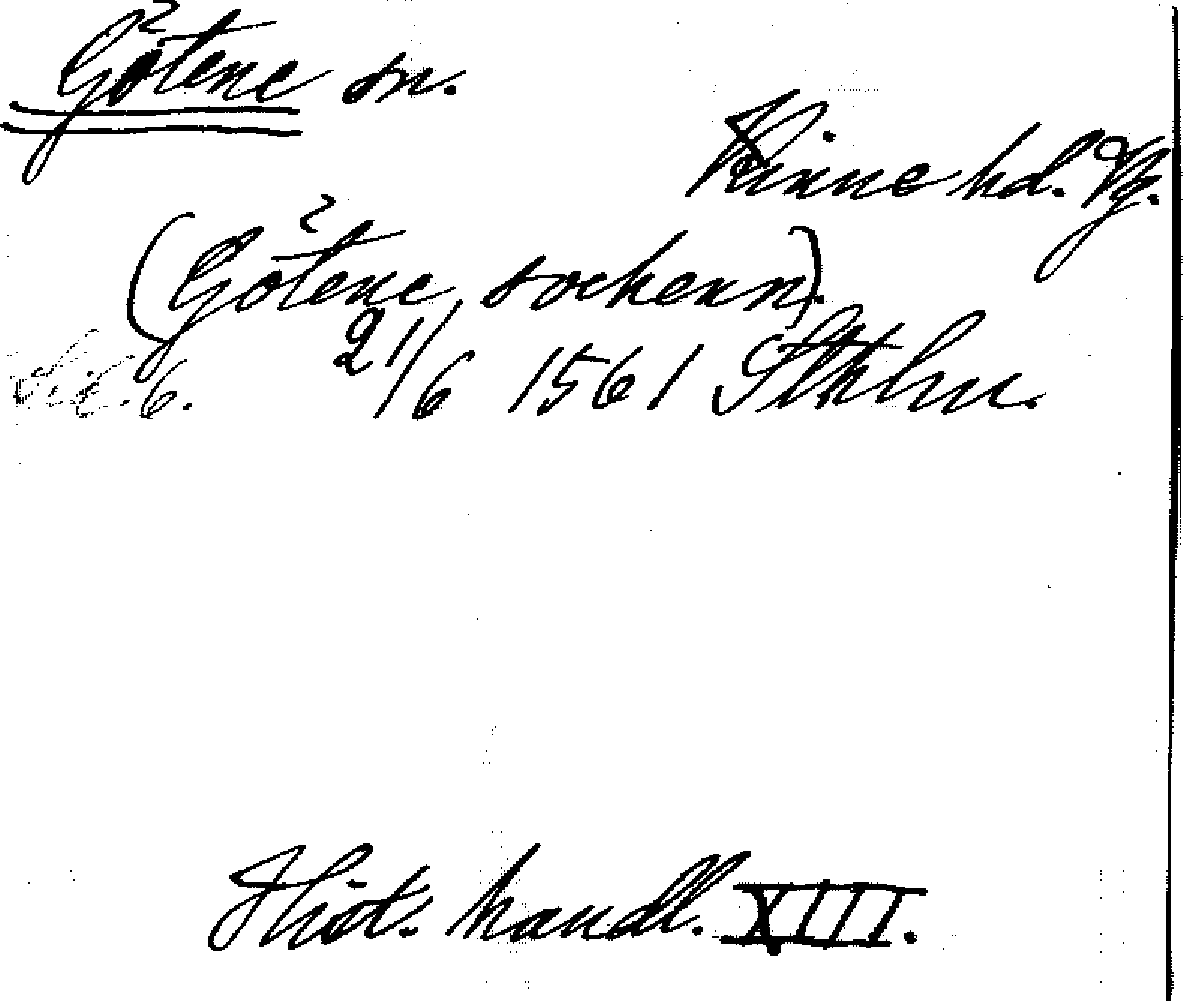 Götene sn.
Kinne hd. Vg.
(Götene, sockenn).
6. 21/6 1561 Sthlm.
Hist. handl. XIII.